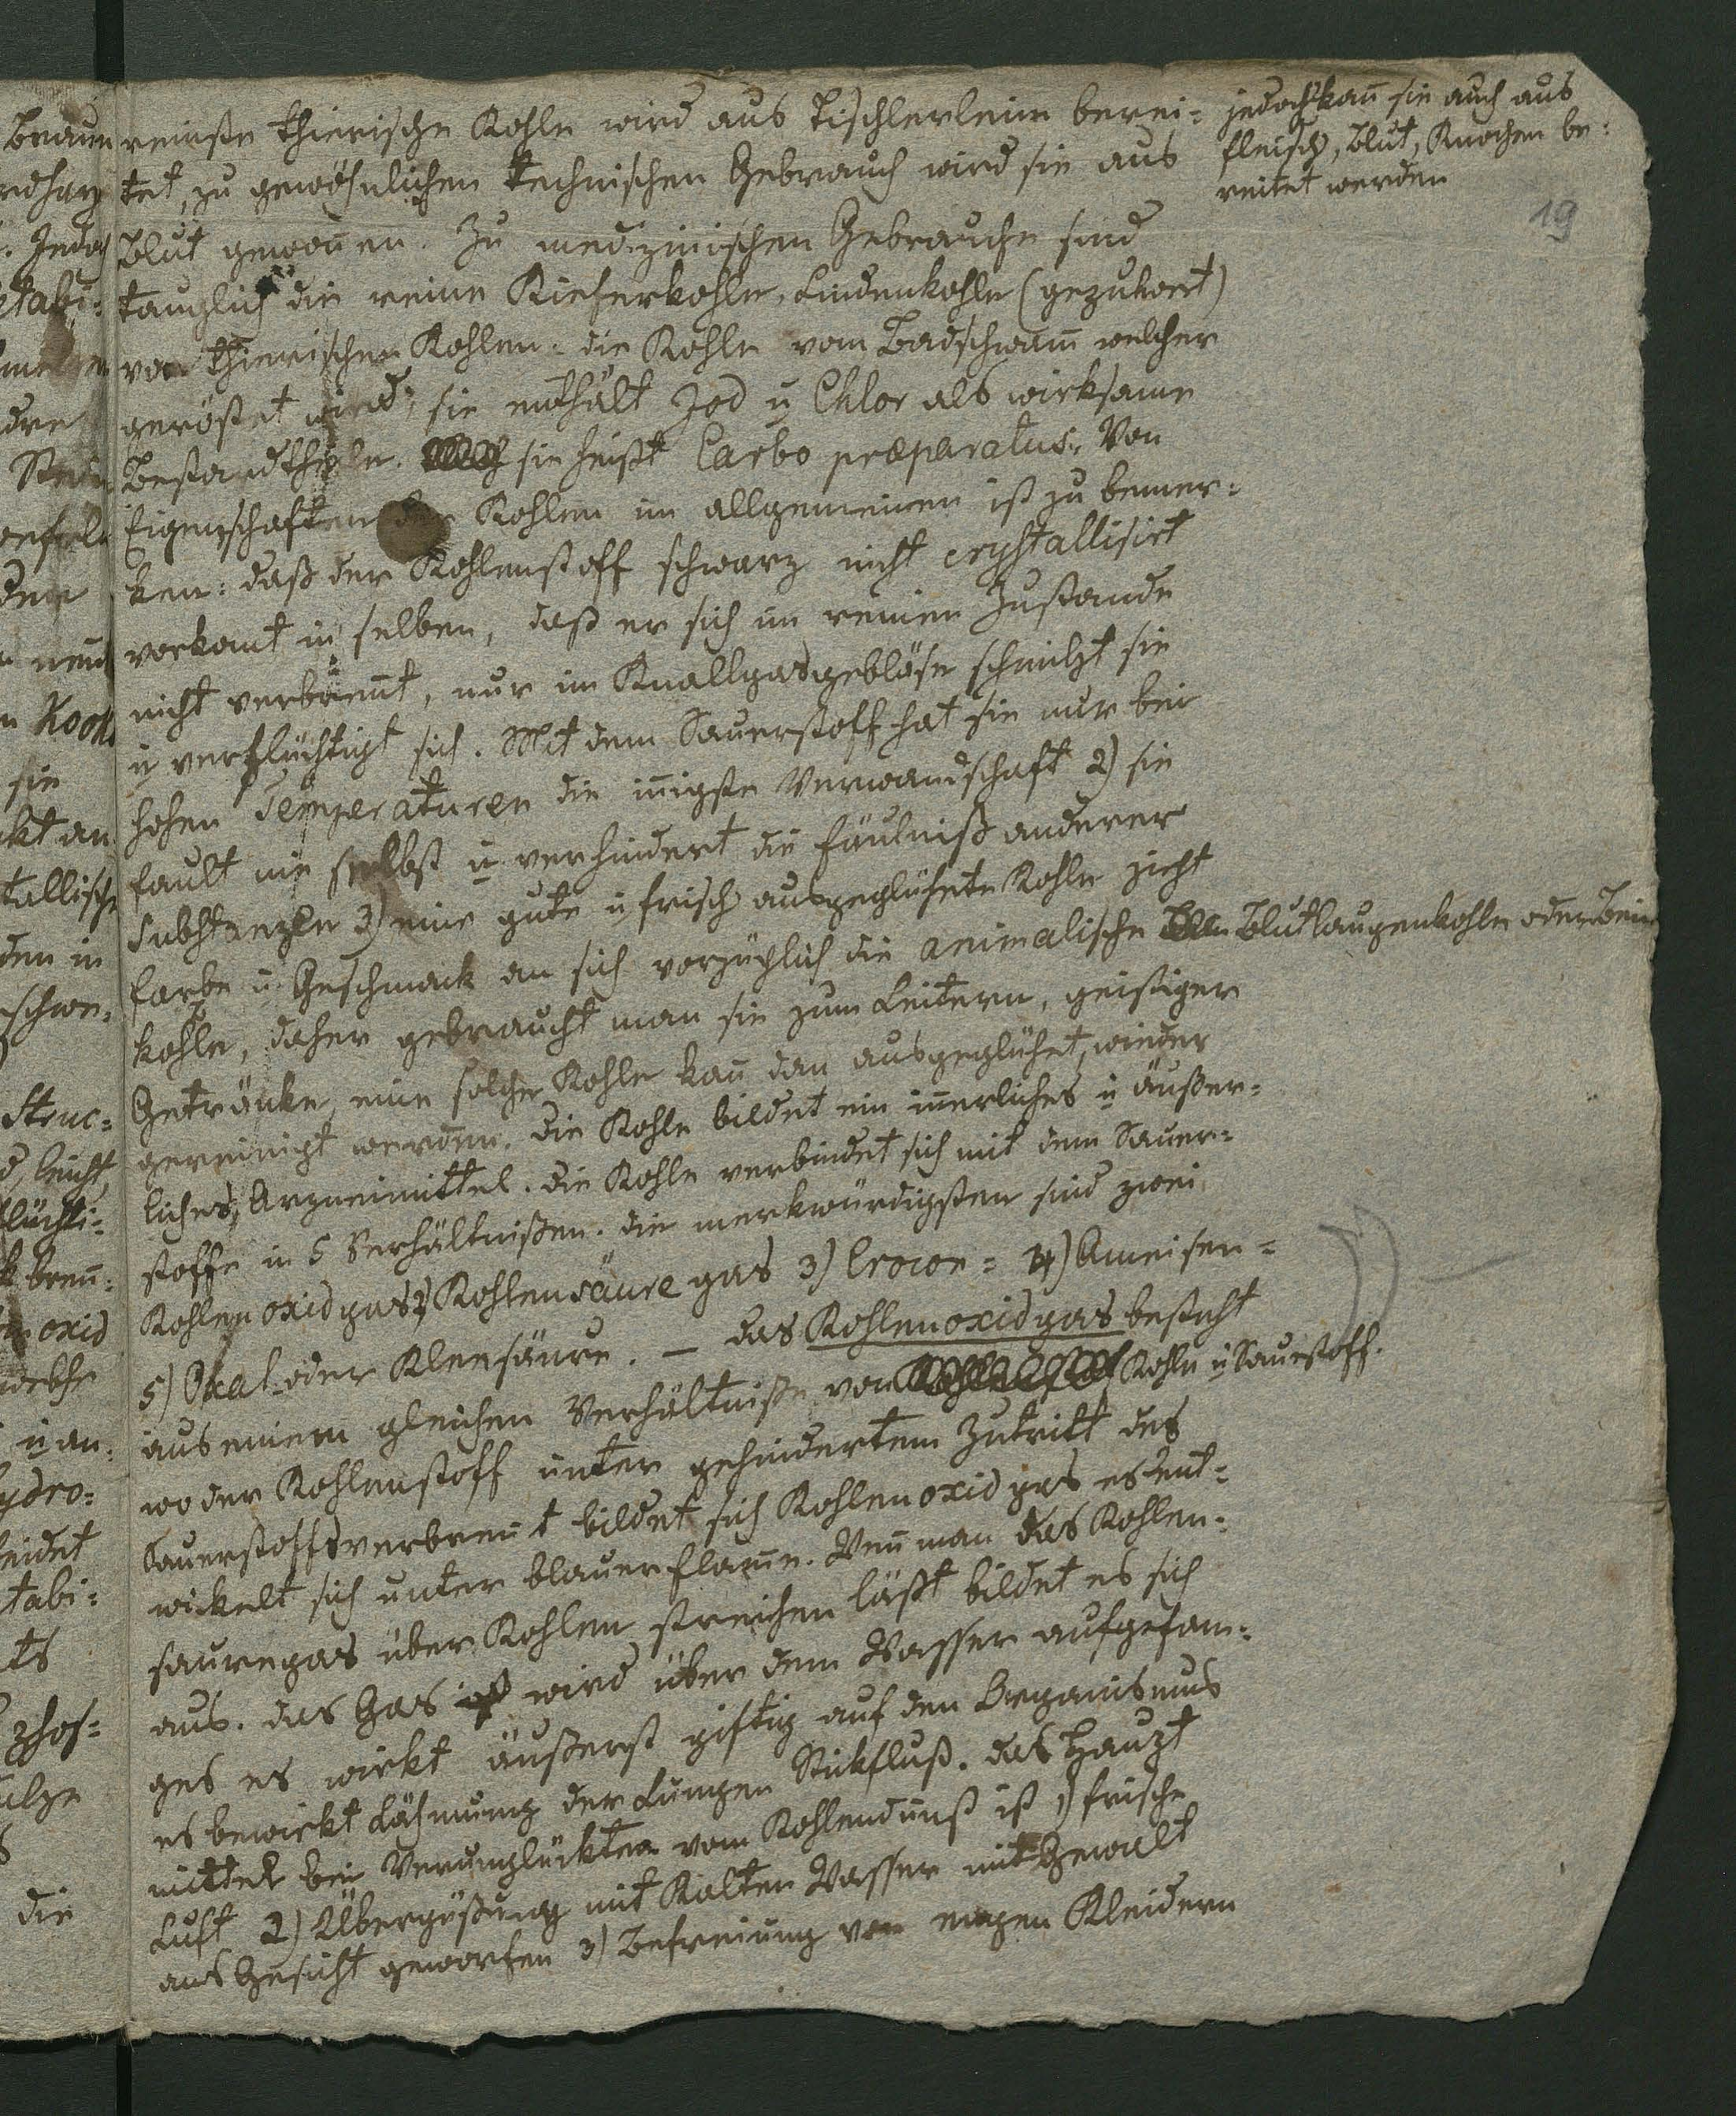 reinste thierische Kohle wird aus Tischlerleim berei=
tet, zu gewöhnlichen technischen Gebrauch wird sie aus
Blut gewon̄en. Zu medizinischen Gebrauche sind
tauglich die reine Kieferkohle, Lindenkohle
von thierischen Kohlen: die Kohle vom Badschwam̄ welcher
geröstet wird; sie enthält Jod u Chlor als wirksame
Bestandtheile. sie heißt Carbo præparatus. Von
Eigenschaften der Kohlen im allgemeinen ist zu bemer=
ken: daß der Kohlenstoff schwarz nicht crystallisirt
vorkom̄t in selben, daß er sich im reinen Zustande
nicht verbren̄t, nur im Knallgasgebläse schmilzt sie
u verflüchtigt sich. Mit dem Sauerstoff hat sie nur bei
hohen Temperaturen die in̄igste Verwandschaft 2) sie
fault nie selbst u verhindert die Fäulniß anderer
Substanzen 3) eine gute u frisch ausgeglühete Kohle zieht
Farbe u Geschmack an sich vorzüglich die animalische Blutlaugenkohle oder Bein
kohle, daher gebraucht man sie zum Leitern, geistiger
Getränke, eine solche Kohle kan̄ dan̄ ausgeglühet, wieder
gereinigt werden. die Kohle bildet ein in̄erliches u äußer=
liches, Arzneimittel. die Kohle verbindet sich mit dem Sauer=
stoffe in 5 Verhältnißen. die merkwürdigsten sind zwei
Kohlenoxidgas 2) Kohlensäure gas 3) Crocon= 4) Ameisen=
5) Oxal- oder Kleesäure. – das Kohlenoxidgas besteht
aus einem gleichen Verhältniße von Kohle u Sauerstoff.
wo der Kohlenstoff unter gehindertem Zutritt des
Sauerstoffs verbren̄t bildet sich Kohlenoxid gas es ent=
wickelt sich unter blauer Flam̄e. Wen̄ man das Kohlen=
sauregas über Kohlen streichen läßt bildet es sich
aus. das Gas wird über dem Wasser aufgefan=
ges es wirkt äußerst giftig auf den Organismus
es bewirkt Lähmung der Lungen Stickfluß. das Haupt
mittel bei Verunglückten vom Kohlendunst ist 1) frische
Luft 2) Übergießung mit Kalten Wasser mit Gewalt
ans Gesicht geworfen 3) Befreiung von engen Kleidern
jedoch kan̄ sie auch aus
Fleisch, Blut, Knochen be=
reitet werden
19